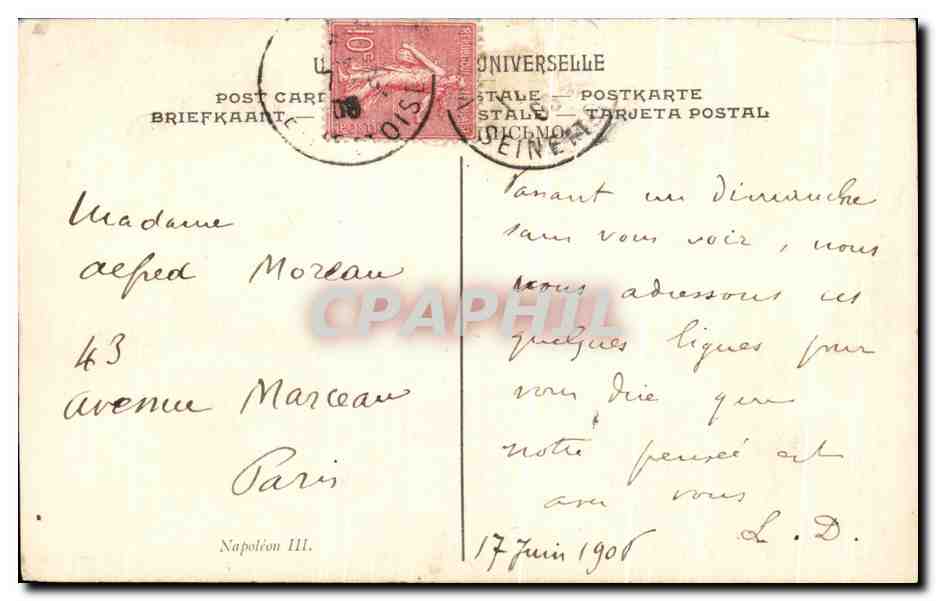 UNIVERSELLE
POST CARD STALE — POSTKARTE
BRIEFKAART — STALE — TARJETA POSTAL
10
SEINE
Madame
Alfred Moreau
43
avenue Marceau
Paris
Napoléon III.
Passant un Dimanche
sans vous voir, nous
vous adressons ces
quelques lignes pour
vous dire que
notre pensée est
avec vous
L. D.
17 Juin 1906
CPAPHIL